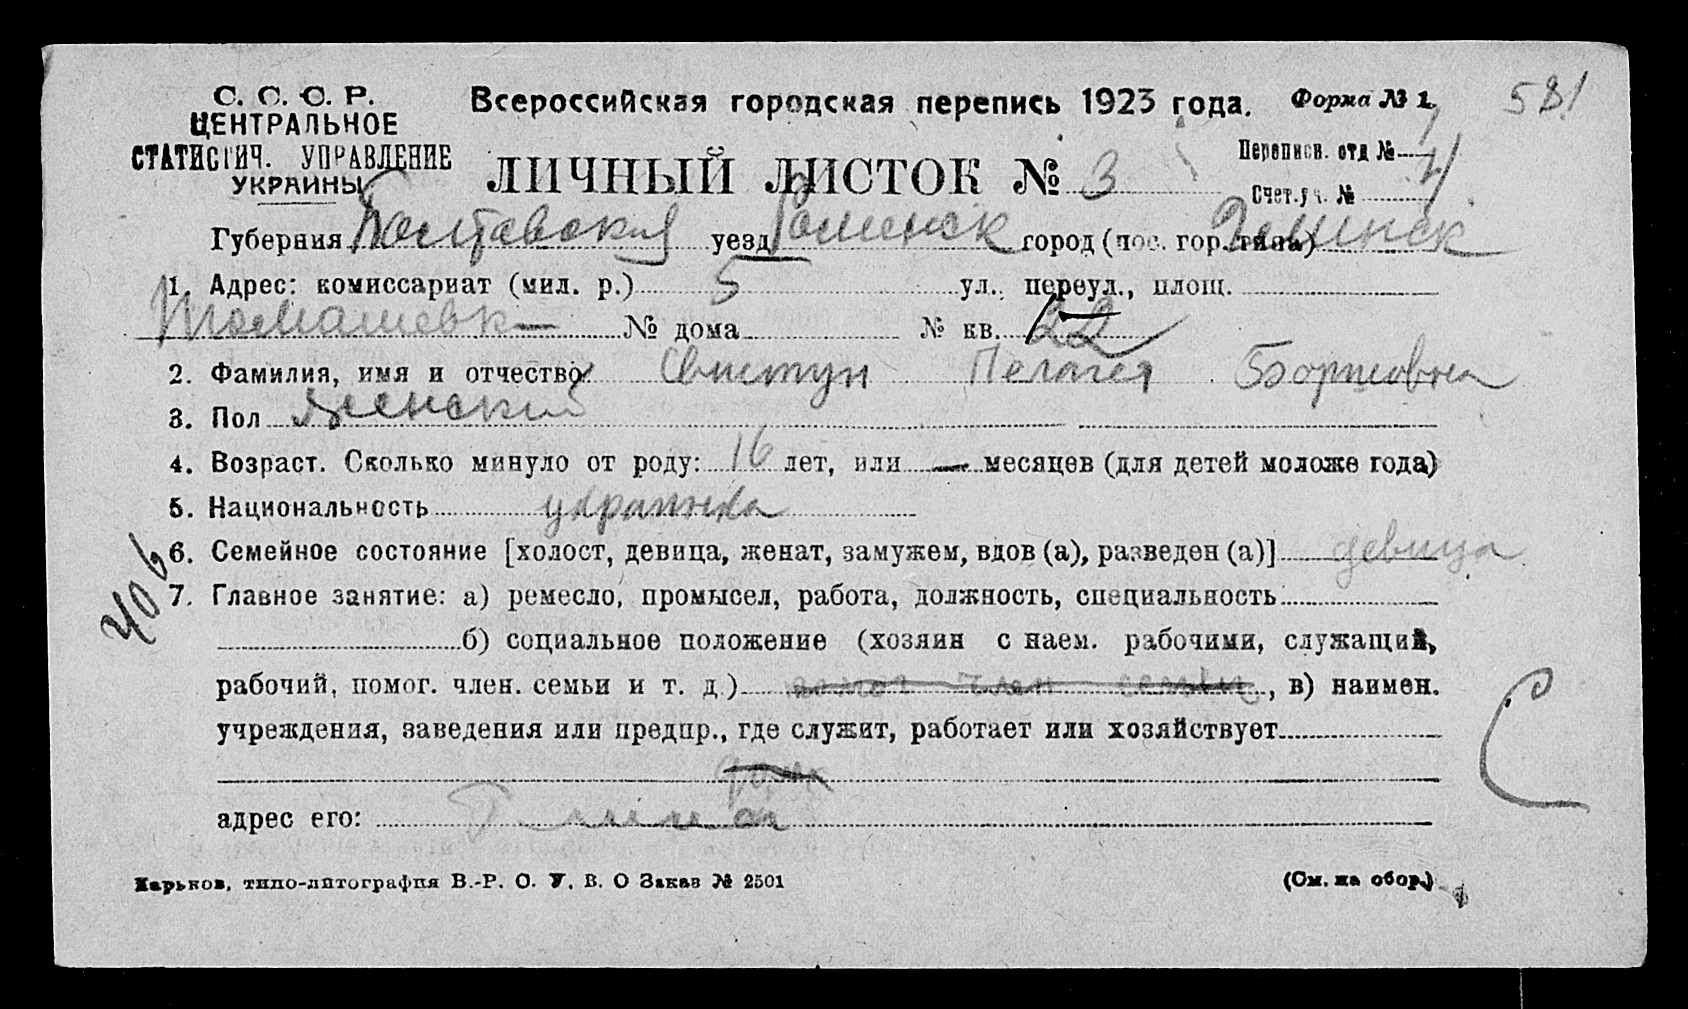 С. С. С. Р.
ЦЕНТРАЛЬНОЕ
СТАТИСТИЧ. УПРАВЛЕНИЕ
УКРАИНЫ
Всероссийская городская перепись 1923 года.
Форма № 1.
581
ЛИЧНЫЙ ЛИСТОК № 3
Переписн. отд №
Счет. уч. № 4
Губерния Полтавская уезд Роменск город (пос. гор. типа)
1. Адрес: комиссариат (мил. р.) 5 ул., переул., площ.
№ дома № кв. 22
2. Фамилия, имя и отчество: Свистун Пелагея
3. Пол женский
4. Возраст. Сколько минуло от роду: 16 лет, или — месяцев (для детей моложе года)
5. Национальность украинка
406
6. Семейное состояние [холост, девица, женат, замужем, вдов (а), разведен (а)] девица
7. Главное занятие: а) ремесло, промысел, работа, должность, специальность
б) социальное положение (хозяин с наем. рабочими, служащий,
рабочий, помог. член. семьи и т. д.) помог член семьи, в) наимен.
учреждения, заведения или предпр., где служит, работает или хозяйствует
адрес его:
С
Харьков, типо-литография В.-Р. О. У. В. О Заказ № 2501
(См. на обор.)